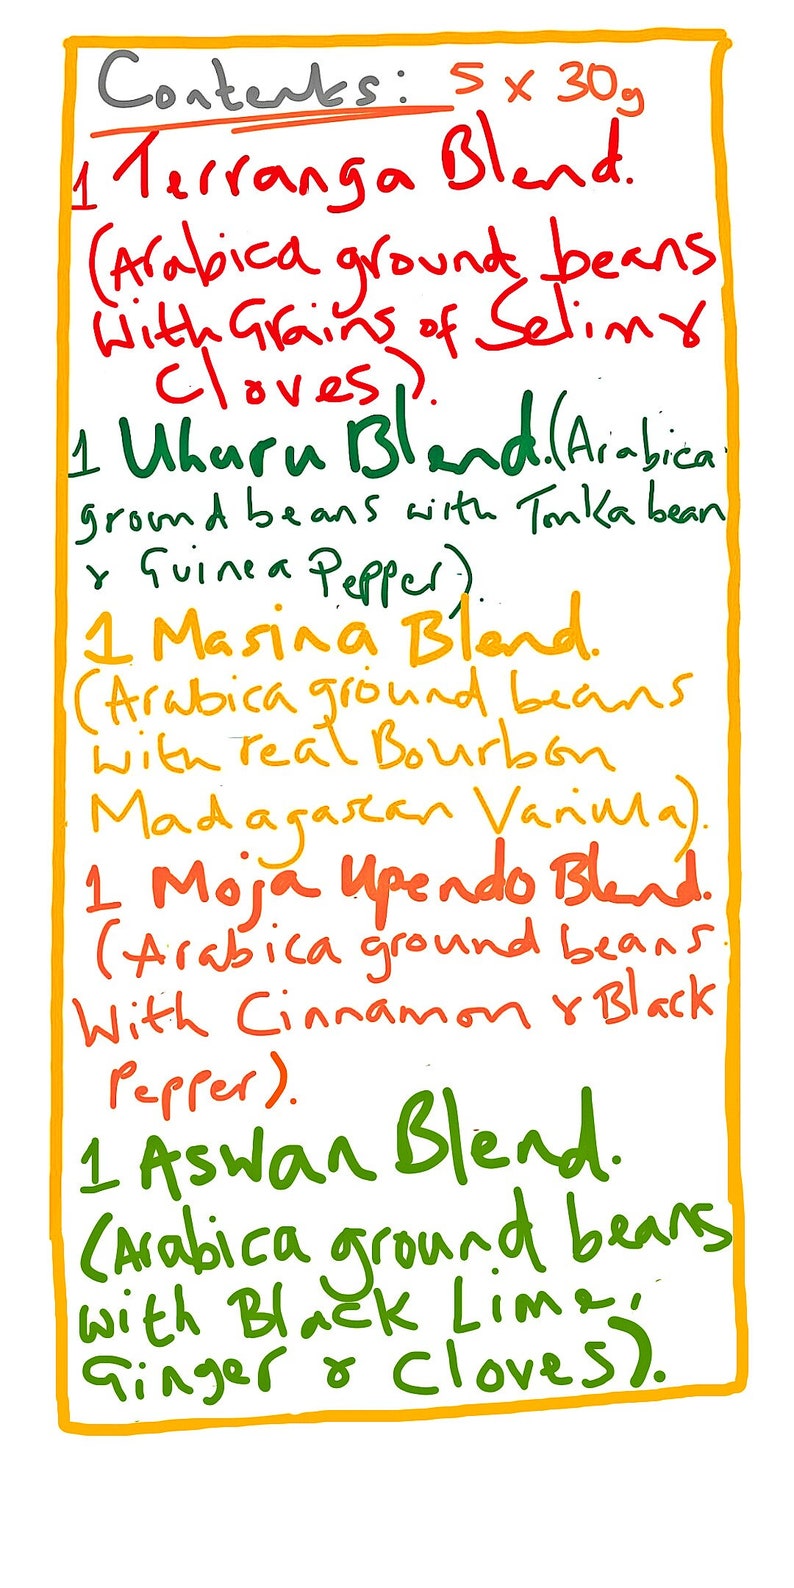 Contents: 5 x 30g
1 Terranga Blend.
(Arabica ground beans
with Grains of Selim &
Cloves).
1 Uhuru Blend. (Arabica
ground beans with Tonka bean
& Guinea Pepper).
1 Masina Blend.
(Arabica ground beans
with real Bourbon
Madagascan Vanilla).
1 Moja Upendo Blend.
(Arabica ground beans
With Cinnamon & Black
Pepper).
1 Aswan Blend.
(Arabica ground beans
with Black Lime,
Ginger & Cloves).